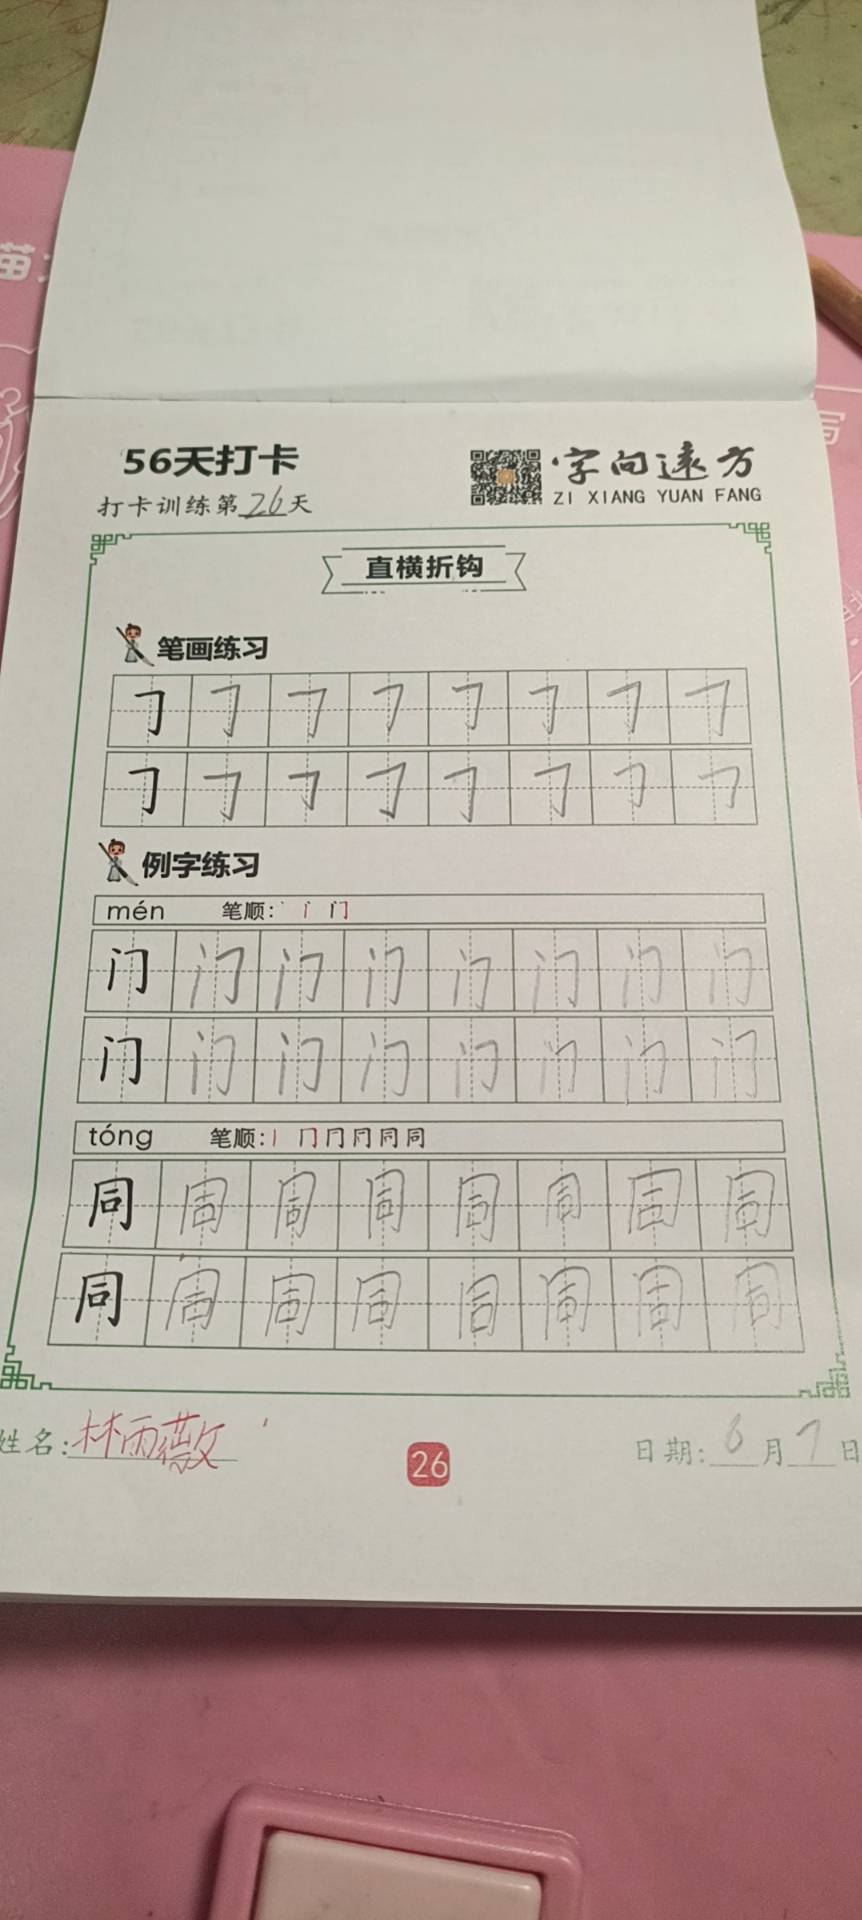 苗
写
56天打卡
字向远方
打卡训练第26天
ZI XIANG YUAN FANG
直横折钩
笔画练习
例字练习
mén 笔顺: 丶 门
门 门 门 门 门 门 门 门
门 门 门 门 门 门 门 门
tóng 笔顺: 丨 冂 冂 同 同 同
同 同 同 同 同 同 同 同
同 同 同 同 同 同 同 同
姓名:林雨薇
26
日期:8月7日